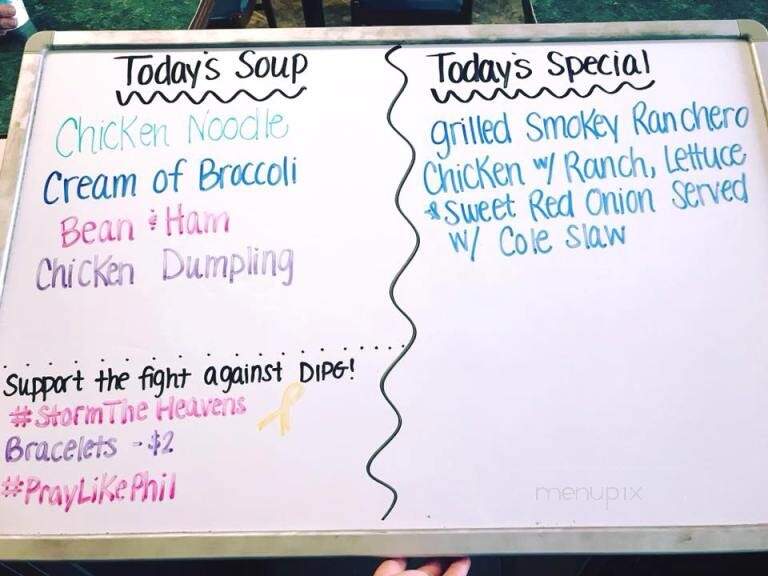 Today's Soup
Chicken Noodle
Cream of Broccoli
Bean & Ham
Chicken Dumpling
Support the fight against DIPG!
#StormThe Heavens
Bracelets - $2
#PrayLikePhil
Today's Special
grilled Smokey Ranchero
Chicken w/ Ranch, Lettuce
& Sweet Red Onion Served
w/ Cole Slaw
menupix